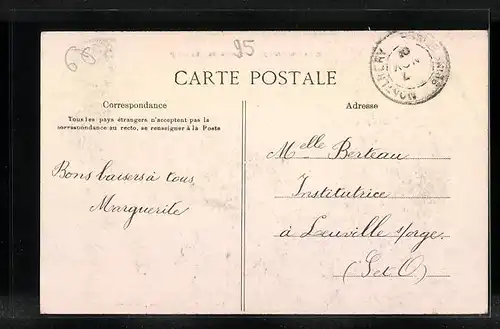 95
CARTE POSTALE
Correspondance
Tous les pays étrangers n'acceptent pas la
correspondance au recto, se renseigner à la Poste
Adresse
MONTLHERY
Bons baisers à tous
Marguerite
Melle Berteau
Institutrice
à Leuville s/orge.
(S et O)